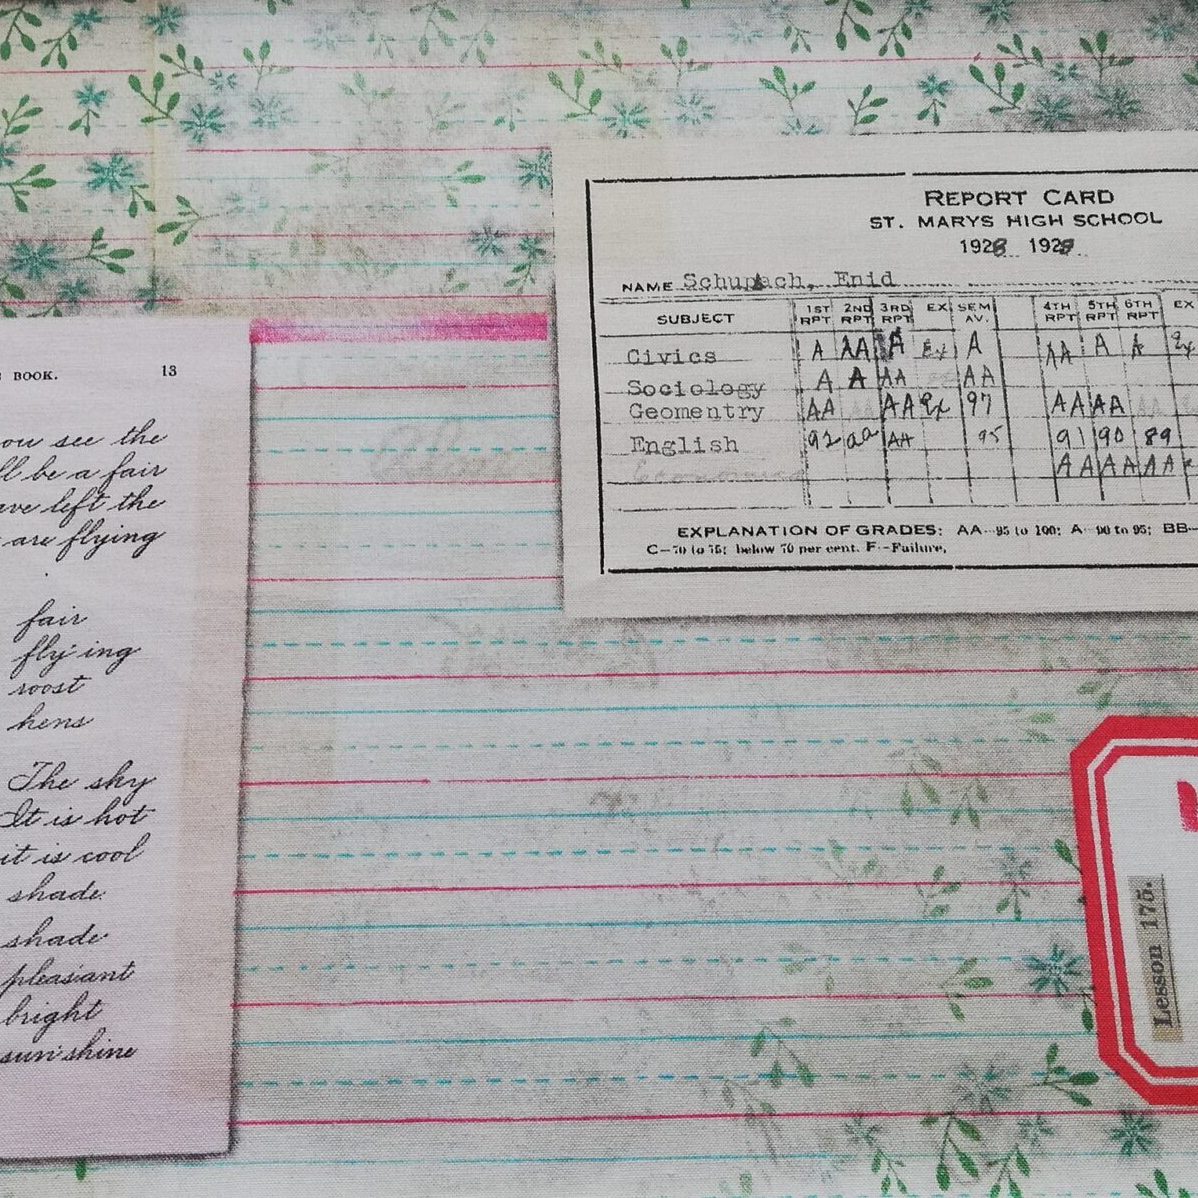 BOOK. 13
ou see the
ll be a fair
ave left the
are flying
fair
fly'ing
roost
hens
The sky
It is hot
it is cool
shade
shade
pleasant
bright
sun'shine
REPORT CARD
ST. MARYS HIGH SCHOOL
1928 1929
NAME Schupach, Enid
SUBJECT 1ST RPT 2ND RPT 3RD RPT EX SEM AV. 4TH RPT 5TH RPT 6TH RPT EX
Civics A AA A Ex A AA A A Ex
Sociology A A AA AA
Geomentry AA AA Ex 97 AA AA
English 92 aa AA 95 91 90 89
AA AA AA
EXPLANATION OF GRADES: AA--95 to 100; A--90 to 95; BB-
C--70 to 75; below 70 per cent. F--Failure.
Lesson 175.